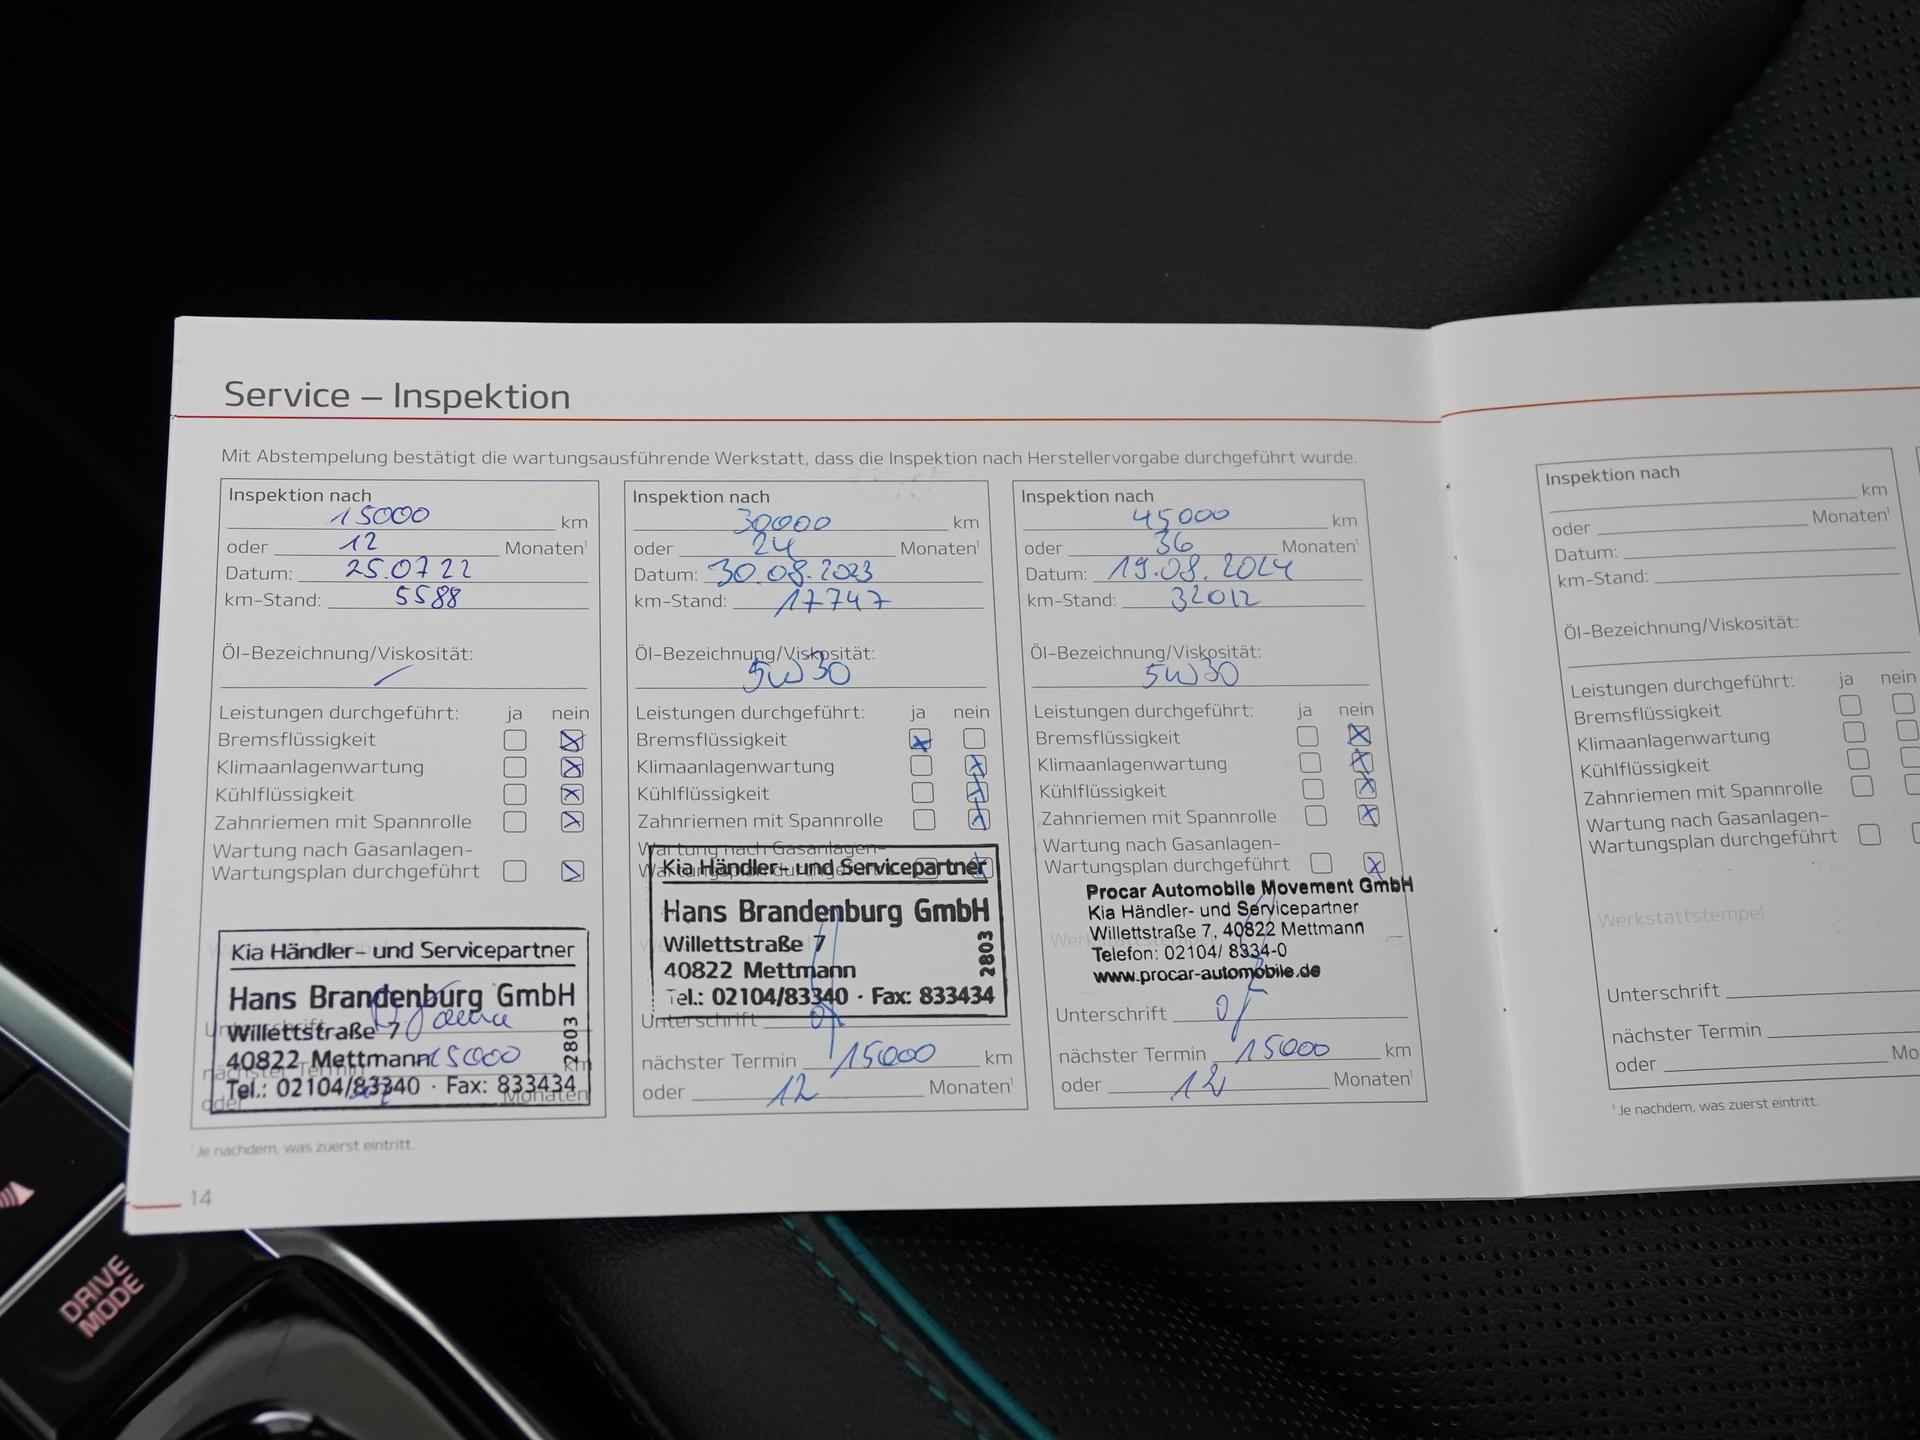 Service – Inspektion
Mit Abstempelung bestätigt die wartungsausführende Werkstatt, dass die Inspektion nach Herstellervorgabe durchgeführt wurde.
Inspektion nach
15000 km
oder 12 Monaten¹
Datum: 25.07 22
km-Stand: 5588
Öl-Bezeichnung/Viskosität:
Leistungen durchgeführt: ja nein
Bremsflüssigkeit
Klimaanlagenwartung
Kühlflüssigkeit
Zahnriemen mit Spannrolle
Wartung nach Gasanlagen-
Wartungsplan durchgeführt
Kia Händler- und Servicepartner
Hans Brandenburg GmbH
Willettstraße 7
40822 Mettmann
Tel.: 02104/83340 · Fax: 833434
2803
Unterschrift
nächster Termin 15000 km
oder Monaten
¹ Je nachdem, was zuerst eintritt.
14
Inspektion nach
30000 km
oder 24 Monaten¹
Datum: 30.08.2023
km-Stand: 17747
Öl-Bezeichnung/Viskosität:
5W30
Leistungen durchgeführt: ja nein
Bremsflüssigkeit
Klimaanlagenwartung
Kühlflüssigkeit
Zahnriemen mit Spannrolle
Wartung nach Gasanlagen-
Wartungsplan durchgeführt
Kia Händler- und Servicepartner
Hans Brandenburg GmbH
Willettstraße 7
40822 Mettmann
Tel.: 02104/83340 · Fax: 833434
2803
Unterschrift
nächster Termin 15000 km
oder 12 Monaten¹
Inspektion nach
45000 km
oder 36 Monaten¹
Datum: 19.08.2024
km-Stand: 32012
Öl-Bezeichnung/Viskosität:
5W30
Leistungen durchgeführt: ja nein
Bremsflüssigkeit
Klimaanlagenwartung
Kühlflüssigkeit
Zahnriemen mit Spannrolle
Wartung nach Gasanlagen-
Wartungsplan durchgeführt
Procar Automobile Movement GmbH
Kia Händler- und Servicepartner
Willettstraße 7, 40822 Mettmann
Telefon: 02104/ 8334-0
www.procar-automobile.de
Unterschrift
nächster Termin 15000 km
oder 12 Monaten¹
Inspektion nach
km
oder Monaten¹
Datum:
km-Stand:
Öl-Bezeichnung/Viskosität:
Leistungen durchgeführt: ja nein
Bremsflüssigkeit
Klimaanlagenwartung
Kühlflüssigkeit
Zahnriemen mit Spannrolle
Wartung nach Gasanlagen-
Wartungsplan durchgeführt
Werkstattstempel
Unterschrift
nächster Termin
oder Mo
¹ Je nachdem, was zuerst eintritt.
DRIVE
MODE